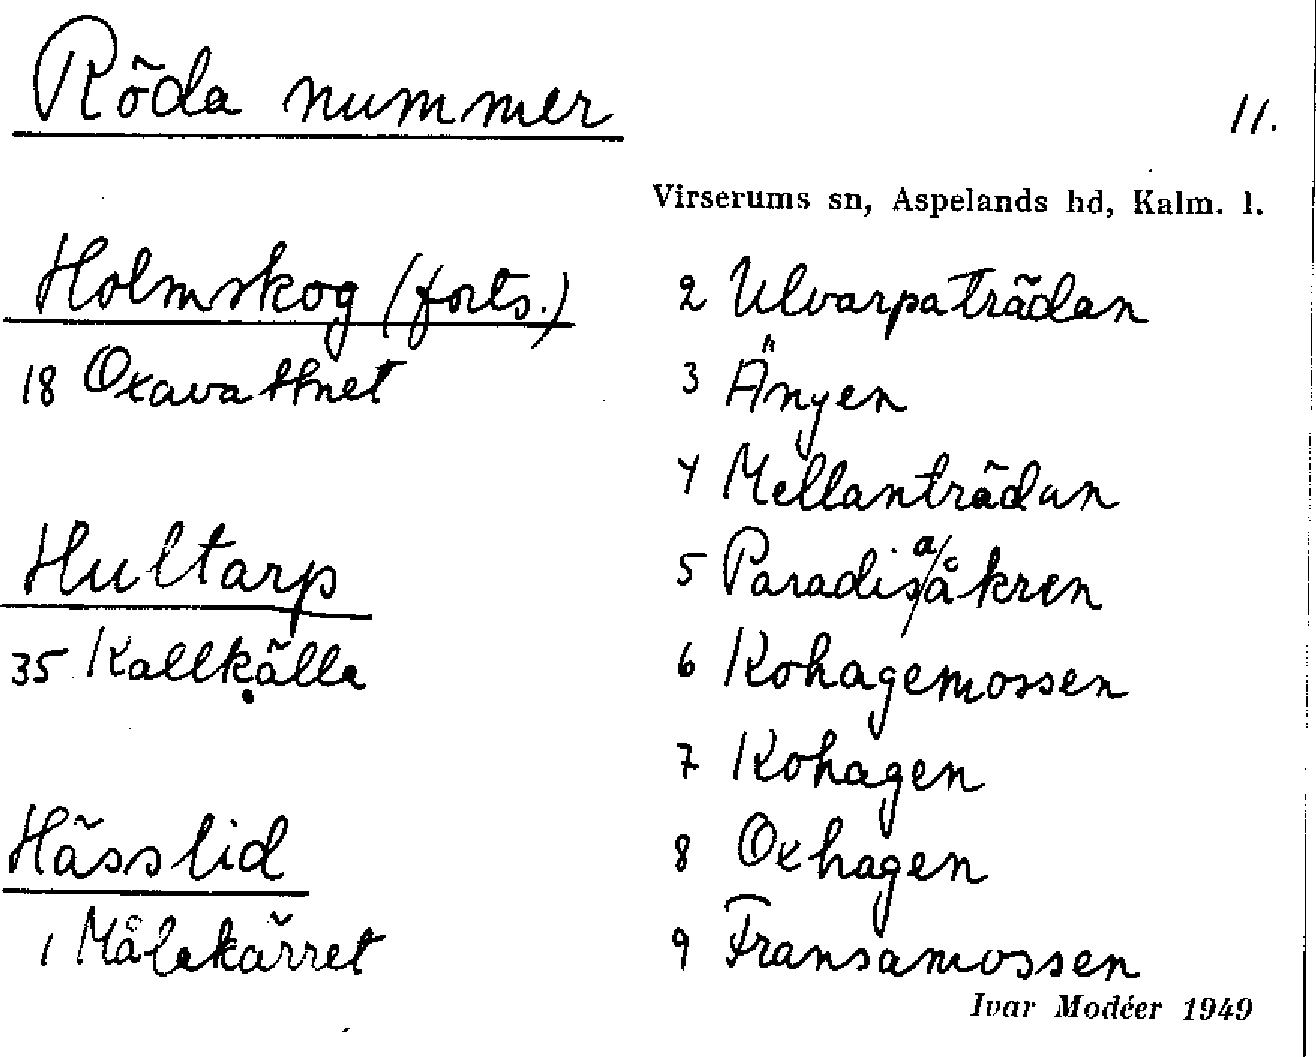 Röda nummer
11.
Virserums sn, Aspelands hd, Kalm. l.
Holmskog (forts.)
18 Oxavattnet
Hultarp
35 Kallkälla
Hässlid
1 Målakärret
2 Ulvarpaträdan
3 Ängen
4 Mellanträdan
5 Paradisaåkren
6 Kohagemossen
7 Kohagen
8 Oxhagen
9 Fransamossen
Ivar Modéer 1949